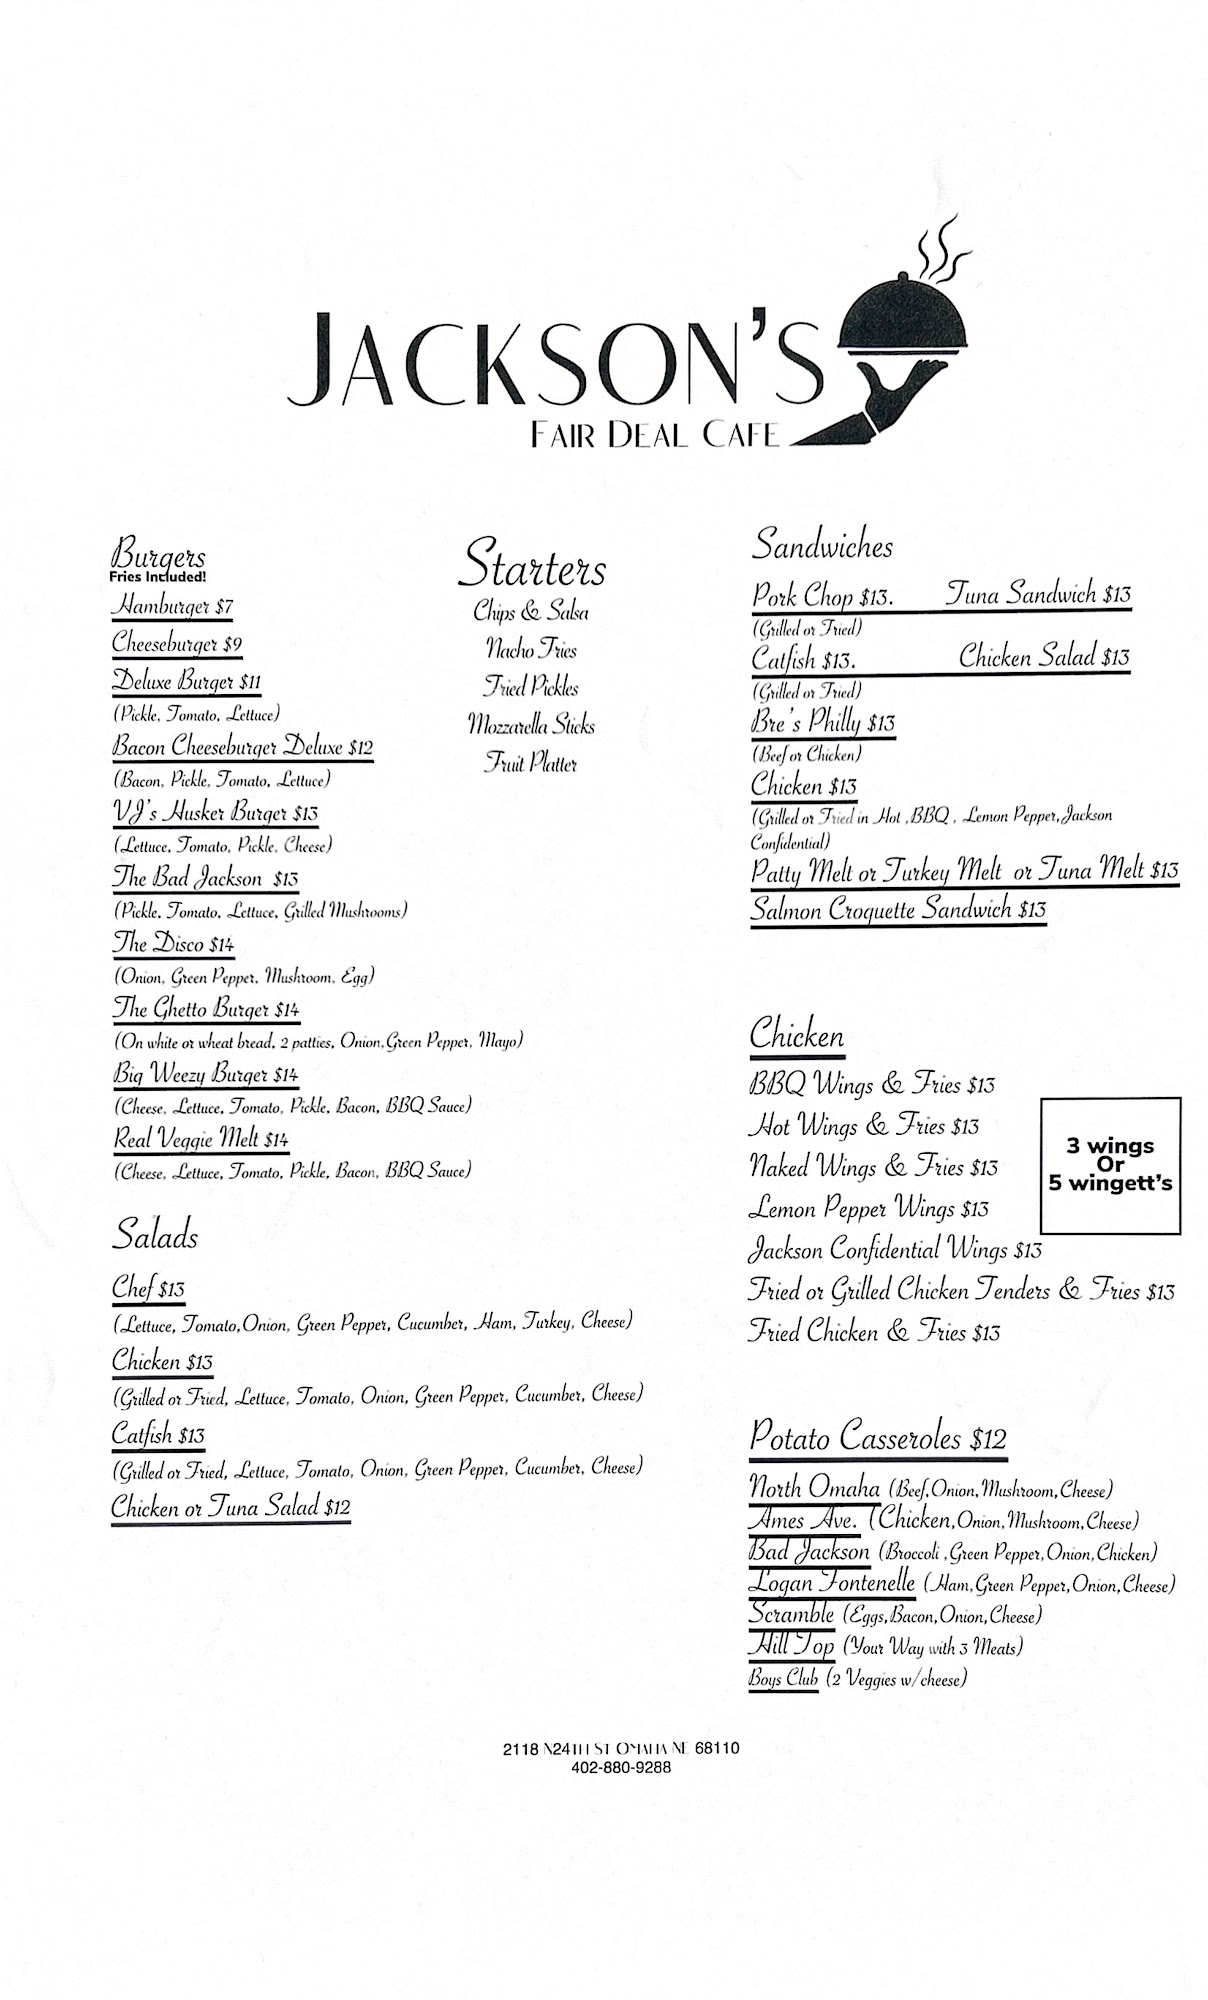 JACKSON'S
FAIR DEAL CAFE
Burgers
Fries Included!
Hamburger $7
Cheeseburger $9
Deluxe Burger $11
(Pickle, Tomato, Lettuce)
Bacon Cheeseburger Deluxe $12
(Bacon, Pickle, Tomato, Lettuce)
VJ's Husker Burger $13
(Lettuce, Tomato, Pickle, Cheese)
The Bad Jackson $13
(Pickle, Tomato, Lettuce, Grilled Mushrooms)
The Disco $14
(Onion, Green Pepper, Mushroom, Egg)
The Ghetto Burger $14
(On white or wheat bread, 2 patties, Onion,Green Pepper, Mayo)
Big Weezy Burger $14
(Cheese, Lettuce, Tomato, Pickle, Bacon, BBQ Sauce)
Real Veggie Melt $14
(Cheese, Lettuce, Tomato, Pickle, Bacon, BBQ Sauce)
Salads
Chef $13
(Lettuce, Tomato,Onion, Green Pepper, Cucumber, Ham, Turkey, Cheese)
Chicken $13
(Grilled or Fried, Lettuce, Tomato, Onion, Green Pepper, Cucumber, Cheese)
Catfish $13
(Grilled or Fried, Lettuce, Tomato, Onion, Green Pepper, Cucumber, Cheese)
Chicken or Tuna Salad $12
Starters
Chips & Salsa
Nacho Fries
Fried Pickles
Mozzarella Sticks
Fruit Platter
Sandwiches
Pork Chop $13. Tuna Sandwich $13
(Grilled or Fried)
Catfish $13. Chicken Salad $13
(Grilled or Fried)
Bre's Philly $13
(Beef or Chicken)
Chicken $13
(Grilled or Fried in Hot ,BBQ , Lemon Pepper,Jackson
Confidential)
Patty Melt or Turkey Melt or Tuna Melt $13
Salmon Croquette Sandwich $13
Chicken
BBQ Wings & Fries $13
Hot Wings & Fries $13
Naked Wings & Fries $13
Lemon Pepper Wings $13
Jackson Confidential Wings $13
Fried or Grilled Chicken Tenders & Fries $13
Fried Chicken & Fries $13
3 wings
Or
5 wingett's
Potato Casseroles $12
North Omaha (Beef,Onion,Mushroom,Cheese)
Ames Ave. (Chicken,Onion,Mushroom,Cheese)
Bad Jackson (Broccoli ,Green Pepper,Onion,Chicken)
Logan Fontenelle (Ham,Green Pepper,Onion,Cheese)
Scramble (Eggs,Bacon,Onion,Cheese)
Hill Top (Your Way with 3 Meats)
Boys Club (2 Veggies w/cheese)
2118 N24TH ST OMAHA NE 68110
402-880-9288